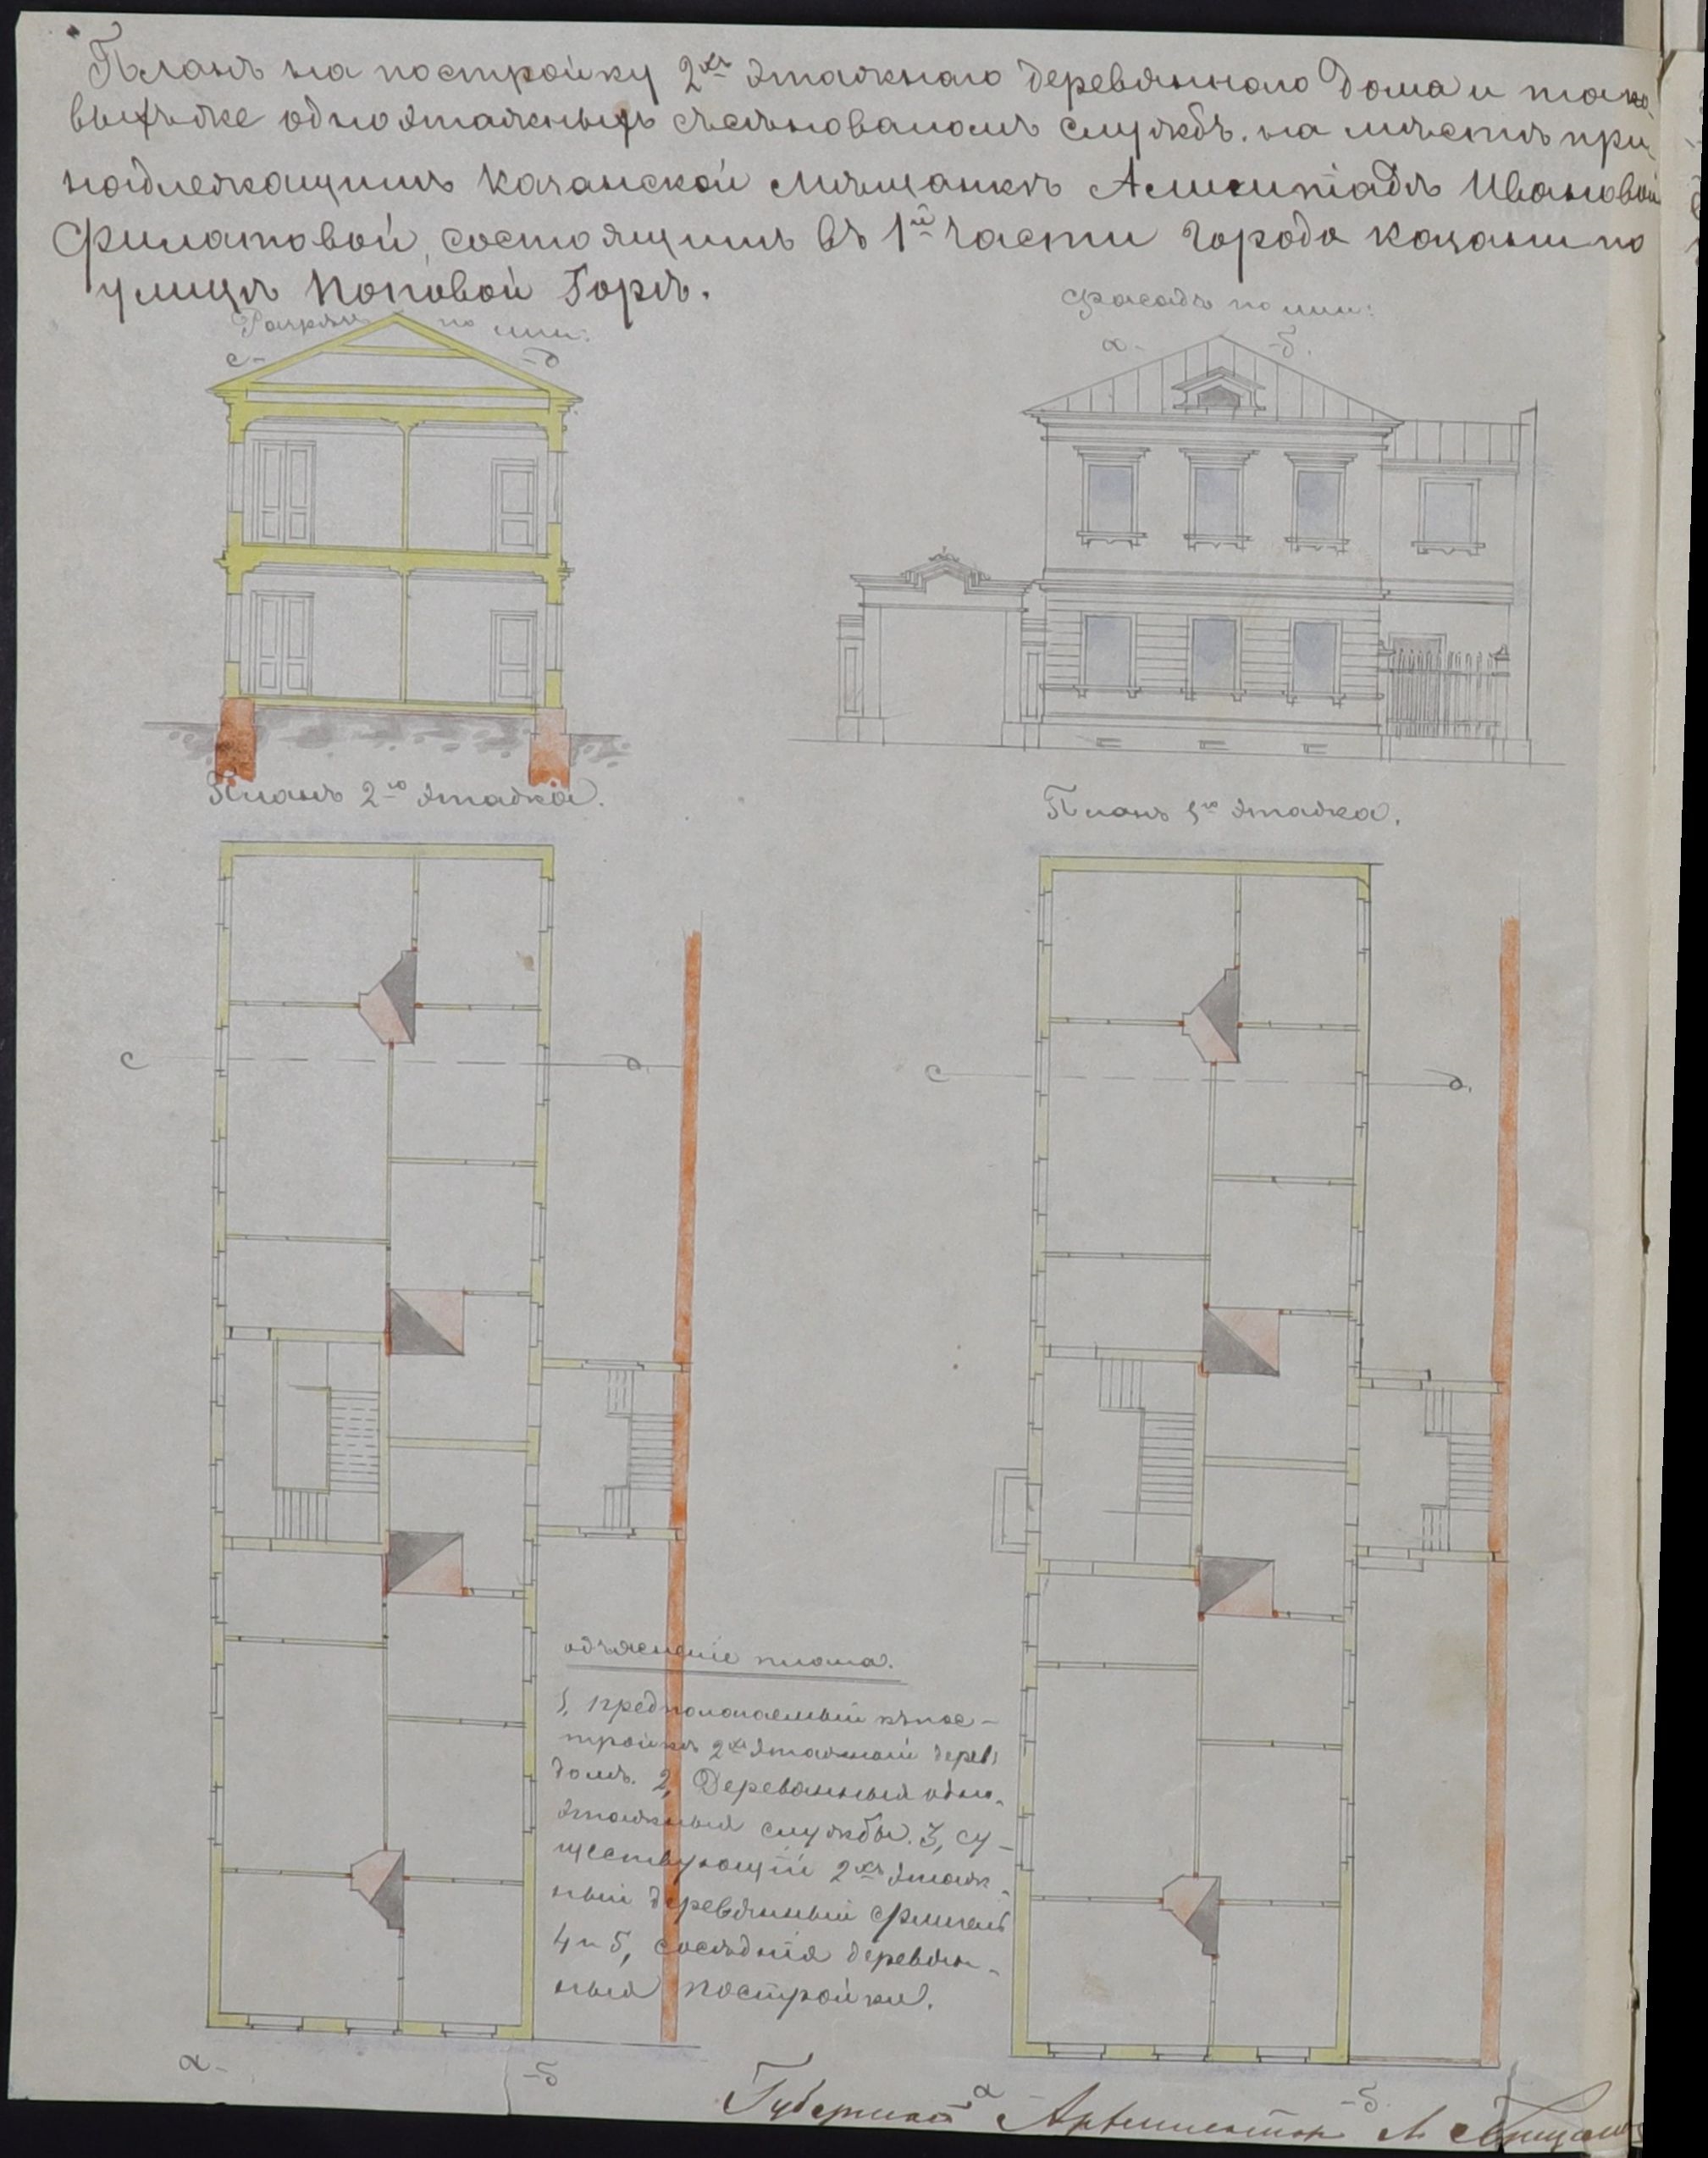 Планъ на постройку 2хъ этажнаго деревяннаго дома и тако
выхъ же одноэтажныхъ службъ. на мѣстѣ при
надлежащимъ казанской мѣщанкѣ Ивановой
Филатовой, состоящимъ въ 1й части города казани по
улицѣ Поповой Горѣ.
Разрѣзъ по лин:
с- -д
Фасадъ по лин:
а- -б.
Планъ 2го этажа.
Планъ 1го этажа.
с д.
с д.
объясненіе плана.
1, предполагаемый къ пос-
тройкѣ 2хъ этажный дерев:
домъ. 2, Деревянныя одно-
этажныя службы. 3, су-
ществующій 2хъ этаж-
ный деревянный флигель
4 и 5, сосѣднія деревян-
ныя постройки.
а- -б
а -б.
Губернскій Архитекторъ Л